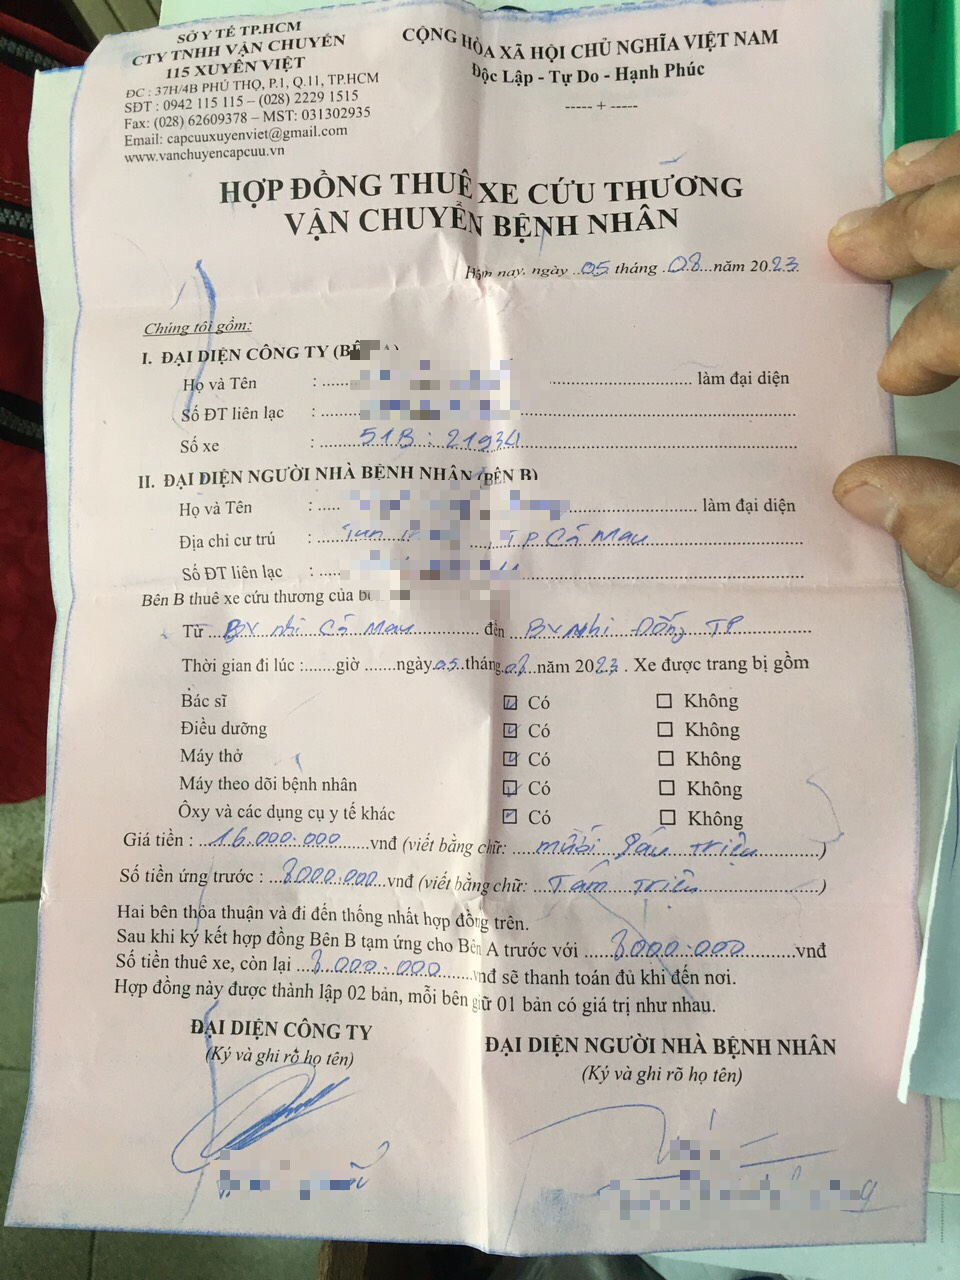 SỞ Y TẾ TP.HCM
CTY TNHH VẬN CHUYỂN
115 XUYÊN VIỆT
ĐC : 37H/4B PHÚ THỌ, P.1, Q.11, TP.HCM
SĐT : 0942 115 115 – (028) 2229 1515
Fax: (028) 62609378 – MST: 031302935
Email: capcuuxuyenviet@gmail.com
www.vanchuyencapcuu.vn
CỘNG HÒA XÃ HỘI CHỦ NGHĨA VIỆT NAM
Độc Lập - Tự Do - Hạnh Phúc
----- + -----
HỢP ĐỒNG THUÊ XE CỨU THƯƠNG
VẬN CHUYỂN BỆNH NHÂN
Hôm nay, ngày ..05 tháng .08...năm 20.23.
Chúng tôi gồm:
I. ĐẠI DIỆN CÔNG TY (BÊN A)
Họ và Tên : ..... làm đại diện
Số ĐT liên lạc : .....
Số xe : ..... 51B : 21934
II. ĐẠI DIỆN NGƯỜI NHÀ BỆNH NHÂN (BÊN B)
Họ và Tên : ..... làm đại diện
Địa chỉ cư trú : ..... Tân TP. Cà Mau
Số ĐT liên lạc : .....
Bên B thuê xe cứu thương của
Từ ... BV nhi Cà Mau ..... đến ... BV Nhi Đồng TP .....
Thời gian đi lúc :......giờ ......ngày 05..tháng 08 năm 2023 . Xe được trang bị gồm
Bác sĩ ☑ Có ☐ Không
Điều dưỡng ☑ Có ☐ Không
Máy thở ☑ Có ☐ Không
Máy theo dõi bệnh nhân ☑ Có ☐ Không
Ôxy và các dụng cụ y tế khác ☑ Có ☐ Không
Giá tiền : ..16.000.000.....vnđ (viết bằng chữ: ... mười sáu triệu .....)
Số tiền ứng trước : 8000.000..vnđ (viết bằng chữ: ... Tám triệu .....)
Hai bên thỏa thuận và đi đến thống nhất hợp đồng trên.
Sau khi ký kết hợp đồng Bên B tạm ứng cho Bên A trước với .....8000.000.....vnđ
Số tiền thuê xe, còn lại ...8.000.000.....vnđ sẽ thanh toán đủ khi đến nơi.
Hợp đồng này được thành lập 02 bản, mỗi bên giữ 01 bản có giá trị như nhau.
ĐẠI DIỆN CÔNG TY
(Ký và ghi rõ họ tên)
ĐẠI DIỆN NGƯỜI NHÀ BỆNH NHÂN
(Ký và ghi rõ họ tên)